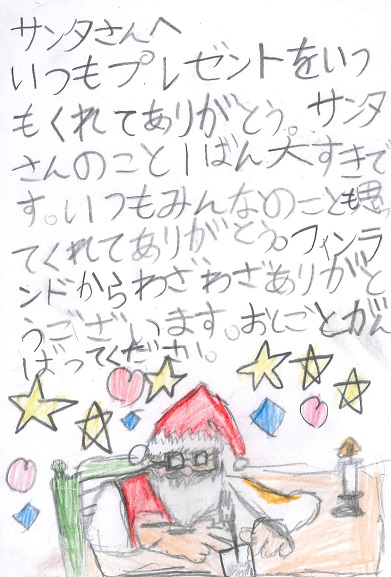 サンタさんへ
いつもプレゼントをいつ
もくれてありがとう。サンタ
さんのこと1ばん大すきで
す。いつもみんなのことも思
てくれてありがとう。フィンラ
ンドからわざわざありがと
うございます。おとごとがん
ばってください。